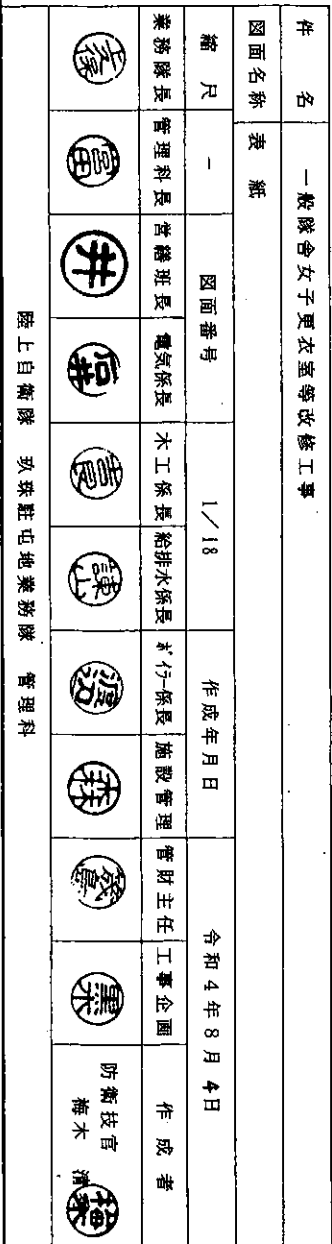 件名 一般隊舎女子更衣室等改修工事
図面名称 表紙
縮尺 － 図面番号 1／18 作成年月日 令和4年8月4日
業務隊長 管理科長 営繕班長 電気係長 木工係長 給排水係長 ボイラー係長 施設管理 管財主任 工事企画 作成者
富田 井 石井 吉良 諌山 渡辺 森 黒木 防衛技官
梅木
陸上自衛隊 玖珠駐屯地業務隊 管理科